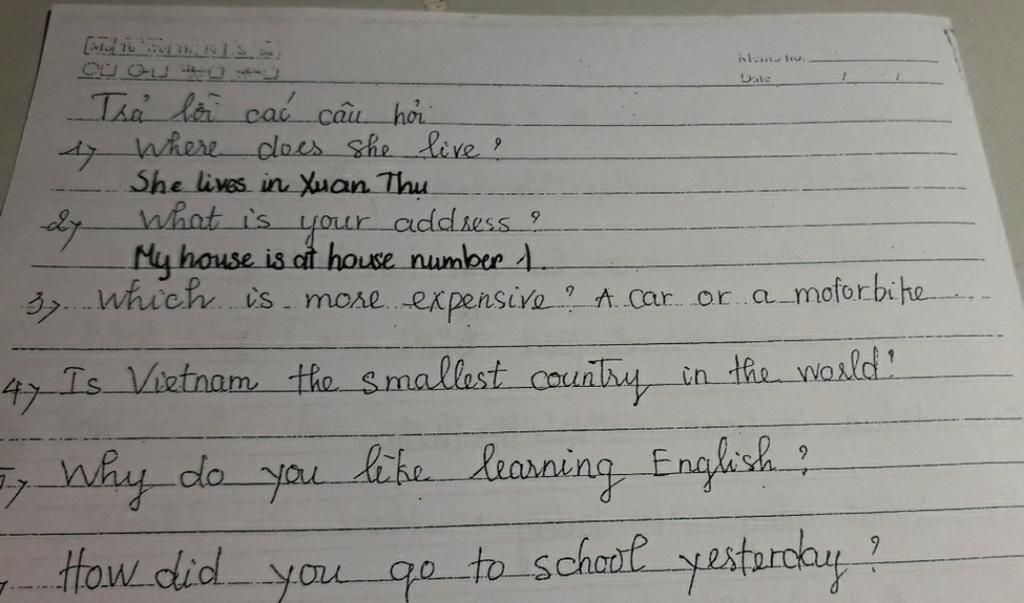 Memo No.
Date / /
Trả lời các câu hỏi
1, Where does she live?
She lives in Xuan Thu
2, What is your address?
My house is at house number 1.
3, Which is more expensive? A car or a motorbike
4, Is Vietnam the smallest country in the world?
5, Why do you like learning English?
How did you go to school yesterday?